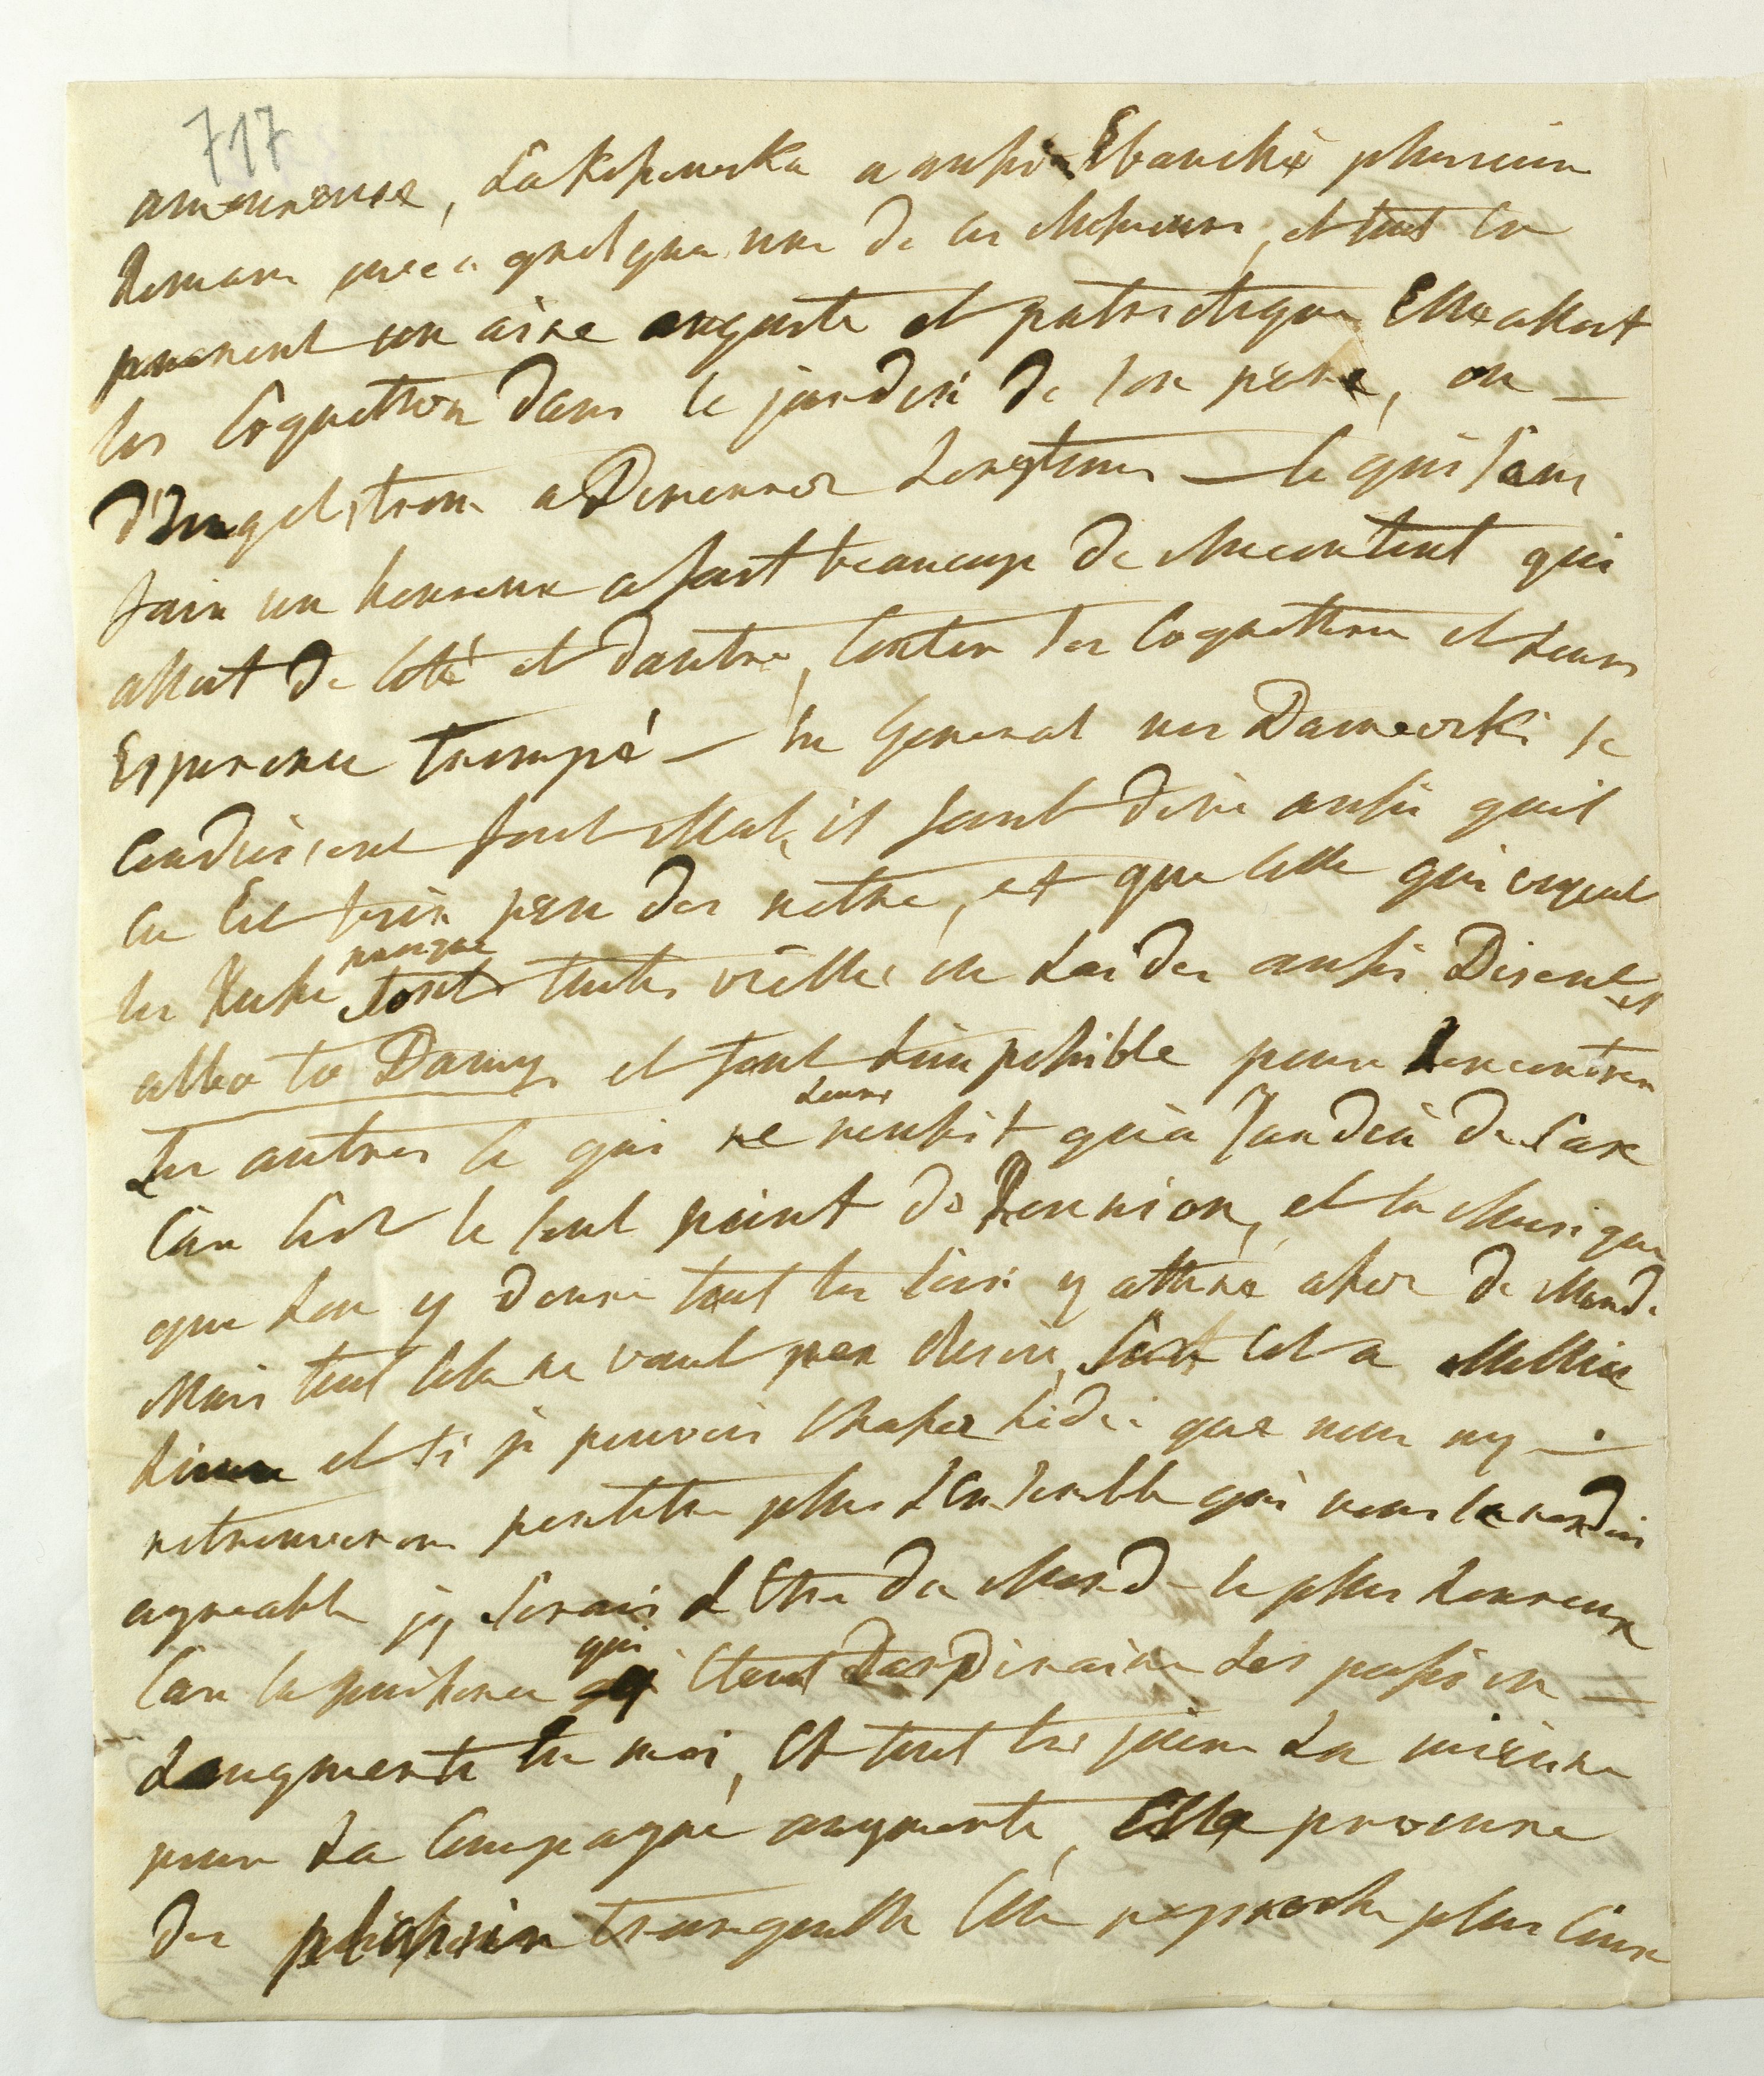 717
amoureuse, a aussi Ebauché plusieur
Romans avec quelqu'une de ces Messieurs, et tout en
prenent un aire auguste et patriotique Elle allait
les Coquetter dans le jardin de son père, ou
d'Engelstrom a Demeuré Longtems — ce qui sans
fair un heureux a fait beaucoup de Mecontent qui
allait de Coté et dautre, Conter ses Coquetterie et Leurs
Esperence trompé — En General nos Damewski se
Conduisent fort Mal, il faut dire aussi quil
en Est très peu des notre, et que Celle qui voyent
les Russe
presque
sont toutes vieilles ou Laides aussi Disent
il
albo to Damy, et font L'impossible pour Rencontrer
Les autres ce qui ne
Leurs
reussit qu'a Jardin de Saxe
Car C'est le seul point de Reunion, et la Musique
que Lon y donne tout les Soir y attire assez de Monde
Mais tout Cela ne vaut pas C'est Cet a Mellier
et si je pouvois Chasser Lidée que nous ny —
retrouverons peutetre plus L'Ensemble qui nous le rendois
agreable jy Serais L'Etre du Monde le plus heureux
Car la jouissence
qui
Eteint Dordinaire Les passion —
Laugmente En moi, Et tout les jours La
pour La Campagne augmente, Elle procure
des tranquille Elle raproche plus